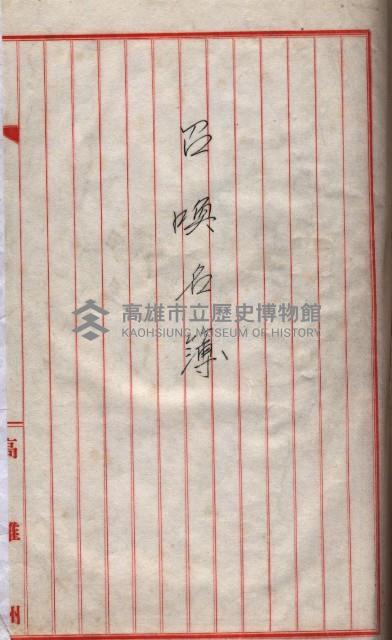 召喚名簿
高雄市立歷史博物館
KAOHSIUNG MUSEUM OF HISTORY
高雄州